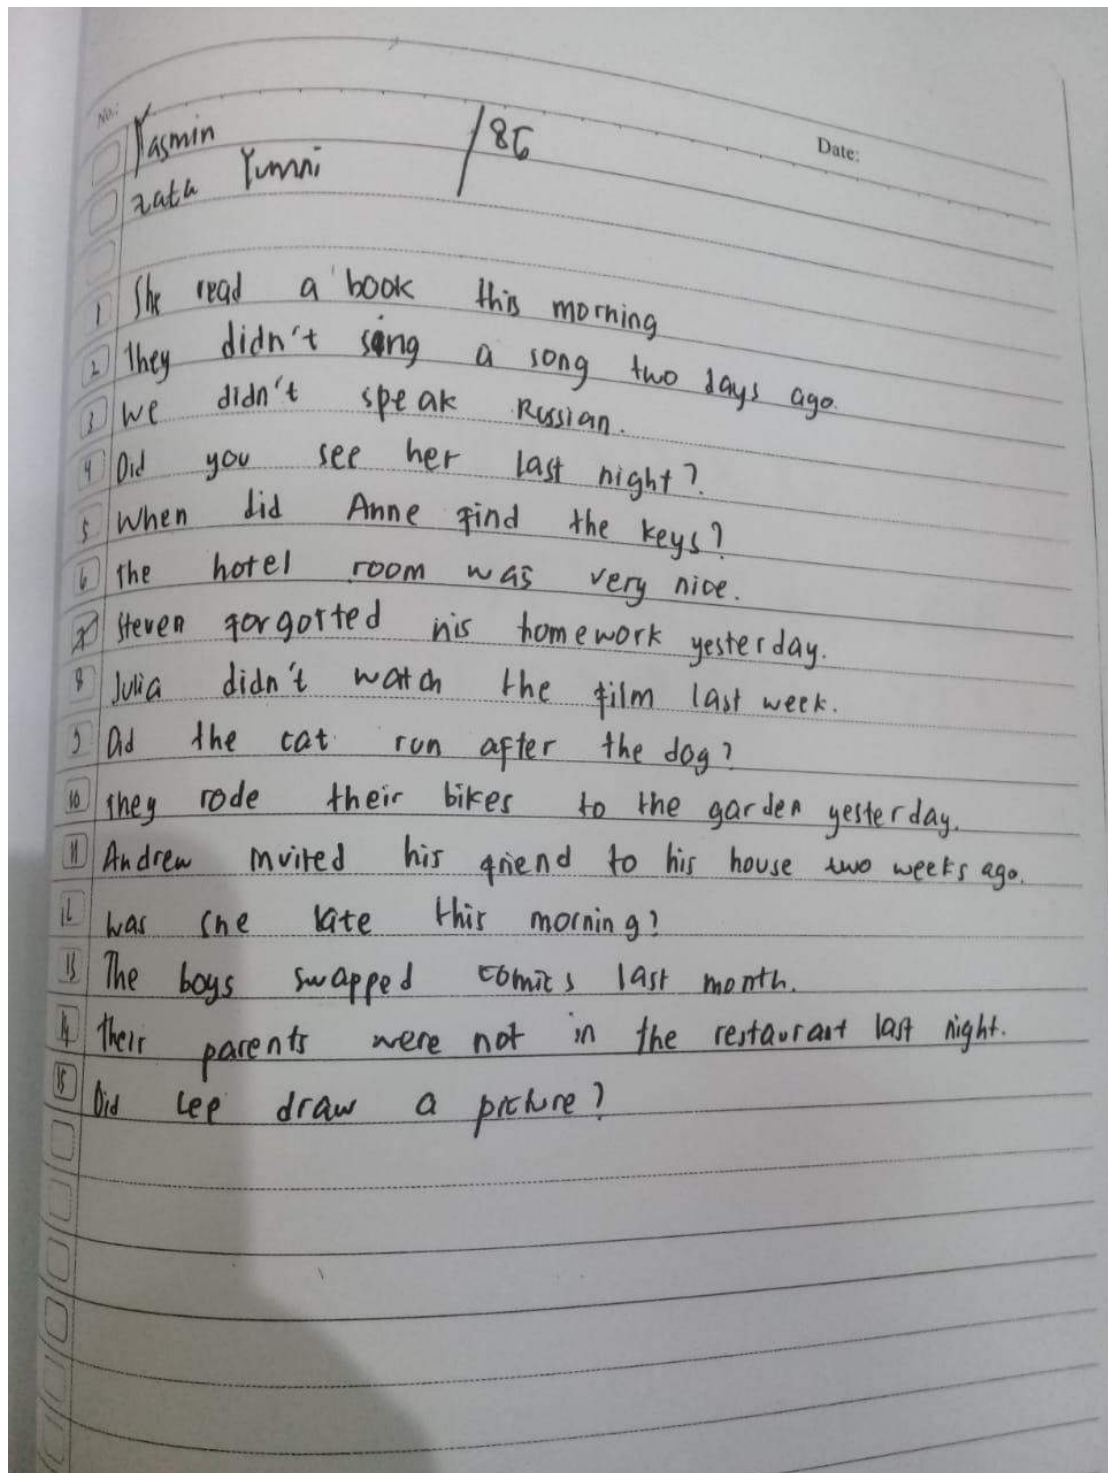 No.:
Date:
Yasmin /8G
zata Yumni
1 She read a book this morning
2 They didn't sing a song two days ago.
3 We didn't speak Russian.
4 Did you see her last night?
5 When did Anne find the keys?
6 the hotel room was very nice.
7 Steven forgotted his homework yesterday.
8 Julia didn't watch the film last week.
9 Did the cat run after the dog?
10 they rode their bikes to the garden yesterday.
11 Andrew invited his friend to his house two weeks ago.
12 was she late this morning?
13 The boys swapped comics last month.
14 their parents were not in the restaurant last night.
15 Did Lee draw a picture?